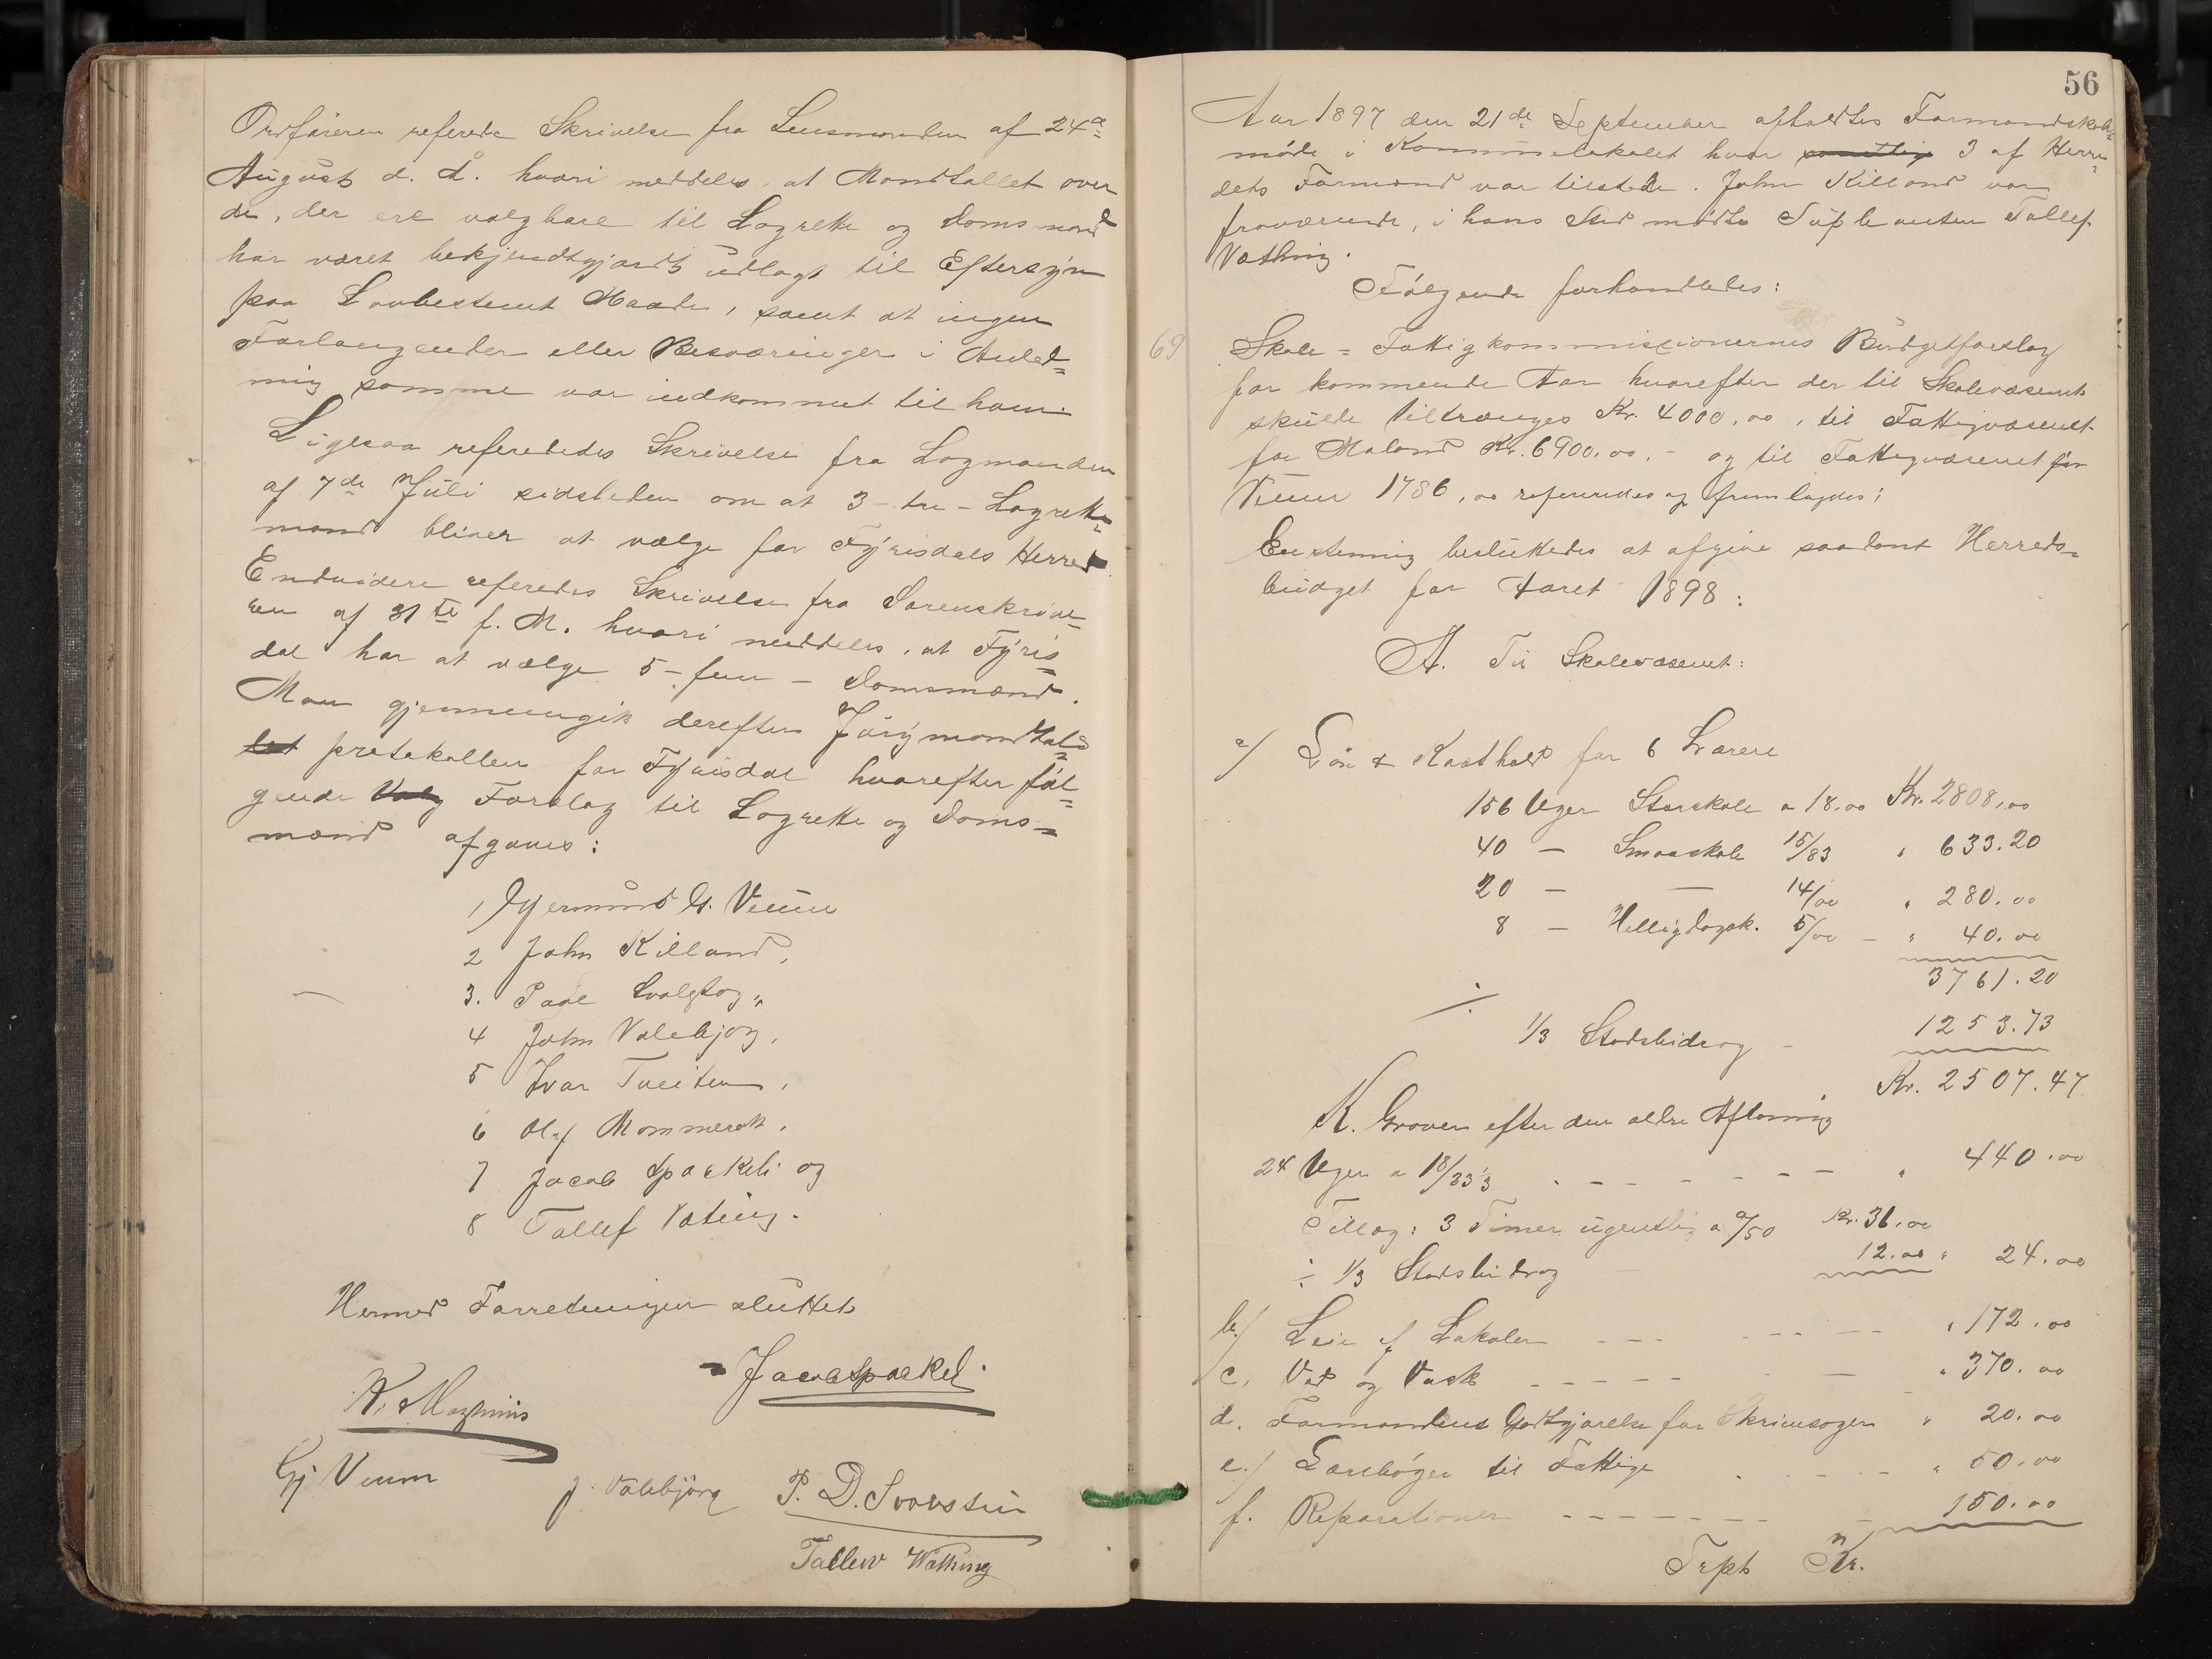 Ordføreren referede Skrivelse fra Lensmanden af 24de
August d. A. hvori meddeles, at Mandtallet over
de, der ere valgbare til Lagrette og Doms mænd
har været bekjendtgjordt udlagt til Eftersyn
paa Lovbestemt Maade, samt at ingen
Forlangender eller Besværinger i Anled=
ning samme var indkommet til ham.
Ligesaa referededes Skrivelse fra Lagmanden
af 7de Juli sidstleden om at 3 - tre - Lagrette=
mænd bliver at vælge for Fyrisdals Herred.
Endvidere referedes Skrivelse fra Sorenskrive=
ren af 31te f. M. hvori meddeles, at Fyris=
dal har at vælge 5 - fem - Domsmænd.
Man gjennemgik derefter Jurymandtals=
let protokollen for Fyrisdal hvorefter føl=
gende Valg Forslag til Lagrette og Doms=
mænd afgaves:
1 Gjermund G. Veum
2 John Killand,
3. Paal
4 John Valebjørg,
5 Ivar Tveiten,
6 Olaf Mommerak,
7 Jacob Spækeli og
8 Tallef Vatning.
Hermed Forretningen sluttet
Jacob Spækel.
K. Magninis
Gj Veum
J. Valebjörg P. D.
Tallew Wathing
56
Aar 1897 den 21de September afholdtes Formandskabs=
møde i Kommunelokalet hvor samtlig 3 af Herre=
dets Formænd var tilstede. John Killand var
fraværende, i hans Sted mødte Supleanten Tallef
Vathing.
Følgende forhandledes:
69 Skole = Fattigkommissionernes Budgetforslag
for kommende Aar hvorefter der til Skolevæsenet
skulde tiltrænges Kr. 4000,00, til Fattigvæsenet
for Moland Kr. 6900,00, - og til Fattigvæsenet for
Veum 1786,00 refereredes og fremlagdes;
Enstemmig besluttedes at afgive saadant Herreds=
budget for Aaret 1898:
A. Til Skolevæsenet:
a/ Løn & Kosthold for 6 Lærere
156 Uger Storskole a 18.00 Kr. 2808,00
40 — Smaaskole 15/83 " 633.20
20 — — 14/00 " 280.00
8 — Helligdagsk. 5/00 — " 40.00
3761.20
÷ 1/3 Statsbidrag - 1253.73
Kr. 2507.47
K. Groven efter den ældre Aflønning
24 Uger a 18/33 1/3 - - - - - - - " 440.00
Tillæg: 3 Timer ugentlig a 0/50 Kr. 36,00
÷ 1/3 Statsbidrag 12.00 " 24.00
b/ Leie af Lokaler - - - - - - - - " 172.00
c, Ved og Vask - - - - - - — " 370.00
d. Formandens Godtgjørelse for Skrivesager " 20.00
e/ Lærebøger til Fattige - - - - - " 50.00
f. Reparationer - - - - - - - - " 150.00
Trpt Kr.